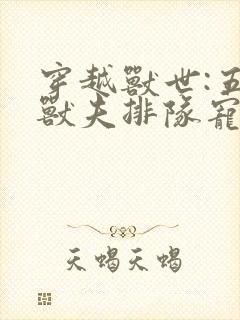 穿越獸世:五
獸夫排隊寵
天蝎天蝎